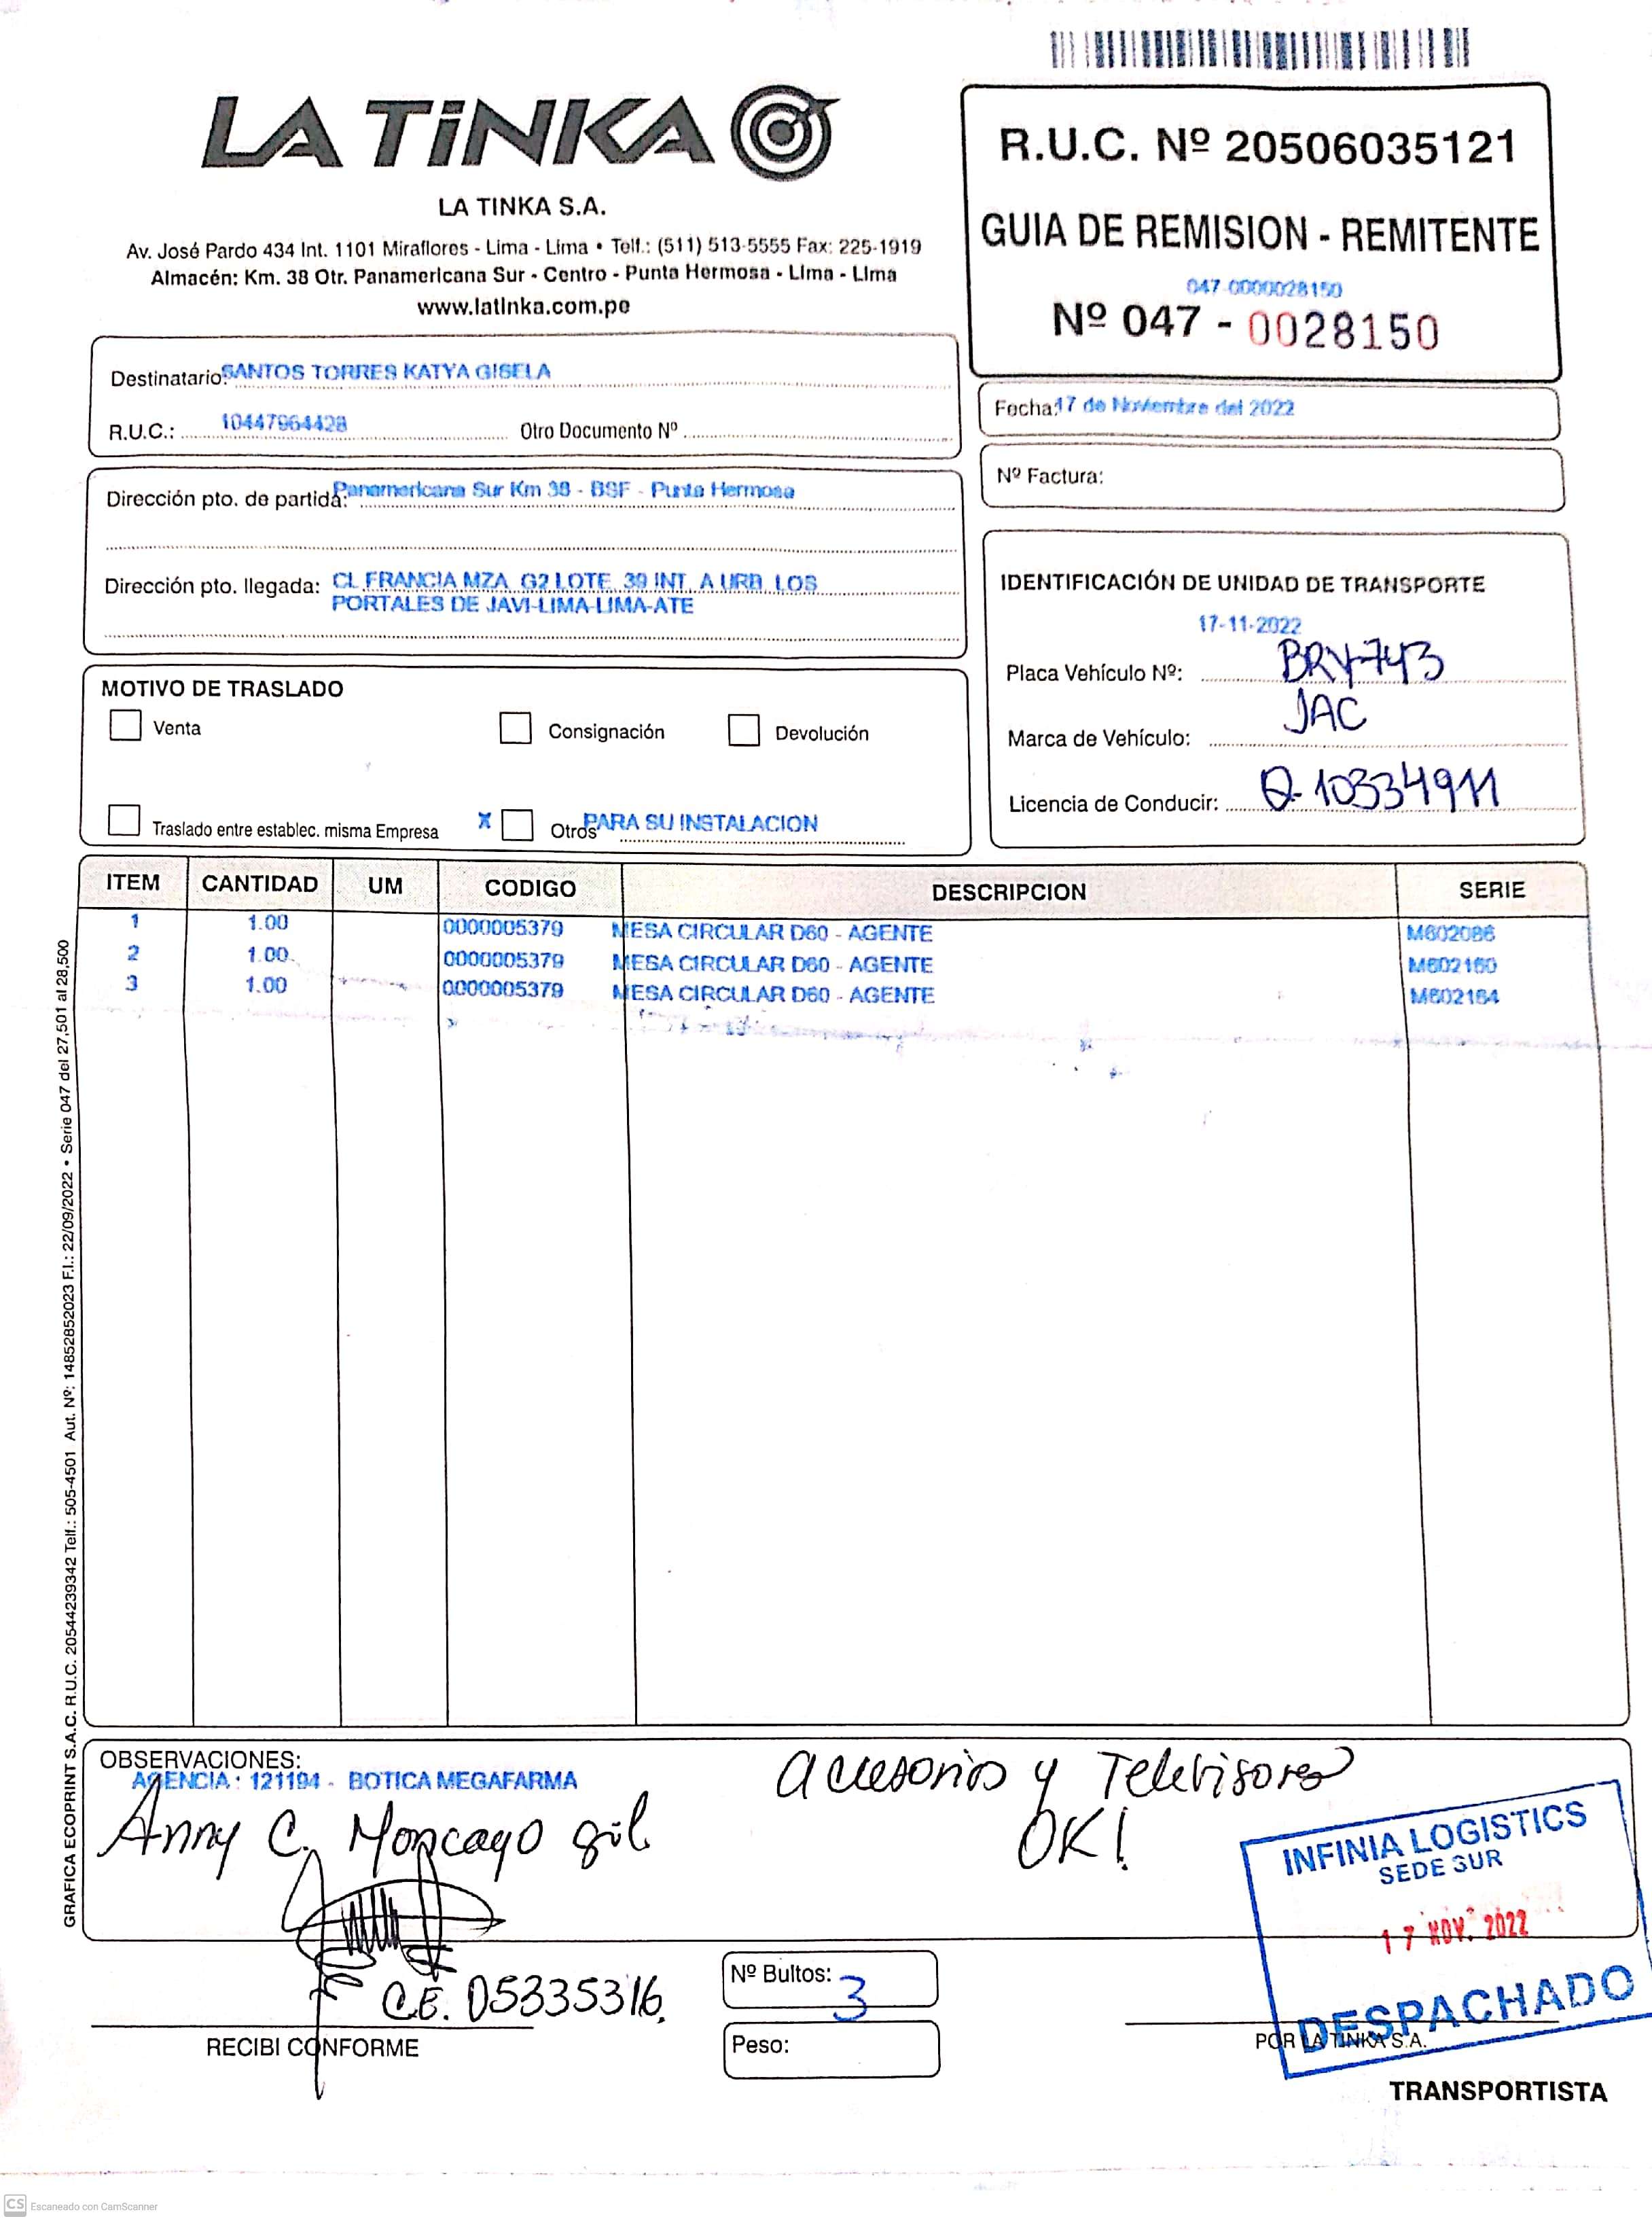 LA TiNKA
LA TINKA S.A.
Av. José Pardo 434 Int. 1101 Miraflores - Lima - Lima • Telf.: (511) 513-5555 Fax: 225-1919
Almacén: Km. 38 Otr. Panamericana Sur - Centro - Punta Hermosa - Lima - Lima
www.latinka.com.pe
R.U.C. Nº 20506035121
GUIA DE REMISION - REMITENTE
047-0000028150
Nº 047 - 0028150
Destinatario: SANTOS TORRES KATYA GISELA
R.U.C.: 10447964428 Otro Documento Nº
Fecha: 17 de Noviembre del 2022
Nº Factura:
Dirección pto. de partida: Panamericana Sur Km 38 - BSF - Punta Hermosa
Dirección pto. llegada: CL FRANCIA MZA. G2 LOTE. 39 INT. A URB. LOS
PORTALES DE JAVI-LIMA-LIMA-ATE
IDENTIFICACIÓN DE UNIDAD DE TRANSPORTE
17-11-2022
Placa Vehículo Nº: BRY-743
Marca de Vehículo: JAC
Licencia de Conducir: Q-10334911
MOTIVO DE TRASLADO
Venta Consignación Devolución
Traslado entre establec. misma Empresa X Otros PARA SU INSTALACION
ITEM CANTIDAD UM CODIGO DESCRIPCION SERIE
1 1.00 0000005379 MESA CIRCULAR D60 - AGENTE M602086
2 1.00 0000005379 MESA CIRCULAR D60 - AGENTE M602160
3 1.00 0000005379 MESA CIRCULAR D60 - AGENTE M602164
GRAFICA ECOPRINT S.A.C. R.U.C. 20544239342 Telf.: 505-4501 Aut. Nº: 14852852023 F.I.: 22/09/2022 • Serie 047 del 27,501 al 28,500
OBSERVACIONES:
AGENCIA: 121194 - BOTICA MEGAFARMA
Anny C. Moncayo gil
accesorios y Televisores
OK!
INFINIA LOGISTICS
SEDE SUR
17 NOV. 2022
DESPACHADO
C.E. 05335316.
RECIBI CONFORME
Nº Bultos: 3
Peso:
POR LA TINKA S.A.
TRANSPORTISTA
CS Escaneado con CamScanner